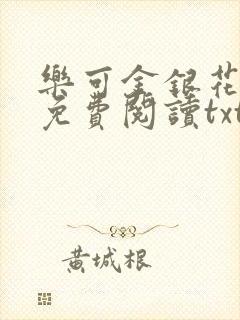 樂可金銀花
免費閱讀txt
黃城根